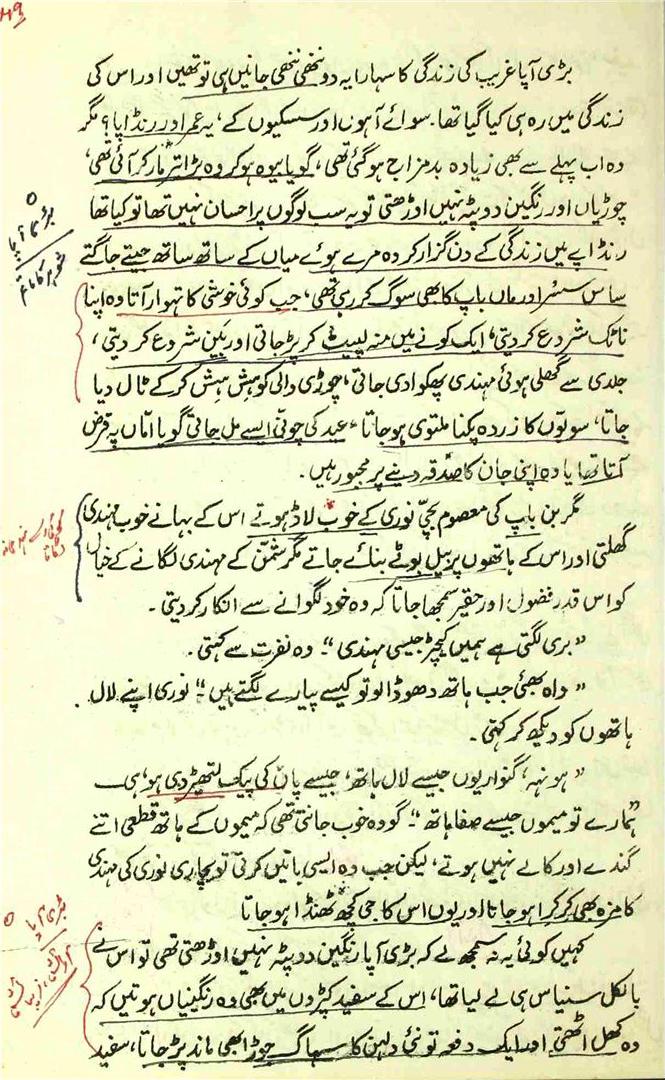 بڑی آپا غریب کی زندگی کا سہارا یہ دو ننھی ننھی جانیں ہی تو تھیں اور اس کی
زندگی میں رہ ہی کیا گیا تھا۔ سوائے آہوں اور سسکیوں کے، یہ عمر اور رنڈاپا؟ مگر
وہ اب پہلے سے بھی زیادہ بدمزاج ہو گئی تھی، گویا بیوہ ہو کر وہ بڑا تیر مار کر آئی تھی،
چوڑیاں اور رنگین دوپٹہ نہیں اوڑھتی تو یہ سب لوگوں پر احسان نہیں تھا تو کیا تھا
رنڈاپے میں زندگی کے دن گزار کر وہ مرے ہوئے میاں کے ساتھ ساتھ جیتے جاگتے
ساس سسر اور ماں باپ کا بھی سوگ کر رہی تھی، جب کوئی خوشی کا تہوار آتا وہ اپنا
ناٹک شروع کر دیتی، ایک کونے میں منہ لپیٹ کر پڑ جاتی اور بین شروع کر دیتی،
جلدی سے گھلی ہوئی مہندی پھکوا دی جاتی، چوڑی والی کو ہش ہش کر کے ٹال دیا
جاتا، سویّوں کا زردہ پکنا ملتوی ہو جاتا، عید کی چونّی ایسے مل جاتی گویا امّاں پہ قرض
آتا تھا یا وہ اپنی جان کا صدقہ دینے پر مجبور ہیں۔
مگر بن باپ کی معصوم بچّی نوری کے خوب لاڈ ہوتے اس کے بہانے خوب مہندی
گھلتی اور اس کے ہاتھوں پر بیل بوٹے بنائے جاتے مگر شمّن کے مہندی لگانے کے خیال
کو اس قدر فضول اور حقیر سمجھا جاتا کہ وہ خود لگوانے سے انکار کر دیتی۔
”بری لگتی ہے ہمیں کیچڑ جیسی مہندی“۔ وہ نفرت سے کہتی۔
”واہ بھئی جب ہاتھ دھو ڈالو تو کیسے پیارے لگتے ہیں“۔ نوری اپنے لال
ہاتھوں کو دیکھ کر کہتی۔
”ہونہہ، گنواریوں جیسے لال ہاتھ، جیسے پان کی پیک لتھیڑ دی ہو، ہی۔
ہمارے تو میموں جیسے صفا ہاتھ“۔ گو وہ خوب جانتی تھی کہ میموں کے ہاتھ قطعی اتنے
گندے اور کالے نہیں ہوتے، لیکن جب وہ ایسی باتیں کرتی تو بچاری نوری کی مہندی
کا مزہ بھی کرکرا ہو جاتا اور یوں اس کا جی کچھ ٹھنڈا ہو جاتا
کہیں کوئی یہ نہ سمجھ لے کہ بڑی آپا رنگین دوپٹہ نہیں اوڑھتی تھی تو اس نے
بالکل سنیاس ہی لے لیا تھا، اس کے سفید کپڑوں میں بھی وہ رنگینیاں ہوتیں کہ
وہ کھل اٹھتی اور ایک دفعہ تو نئی دلہن کا سہاگ جوڑا بھی ماند پڑ جاتا، سفید
بڑی آپا